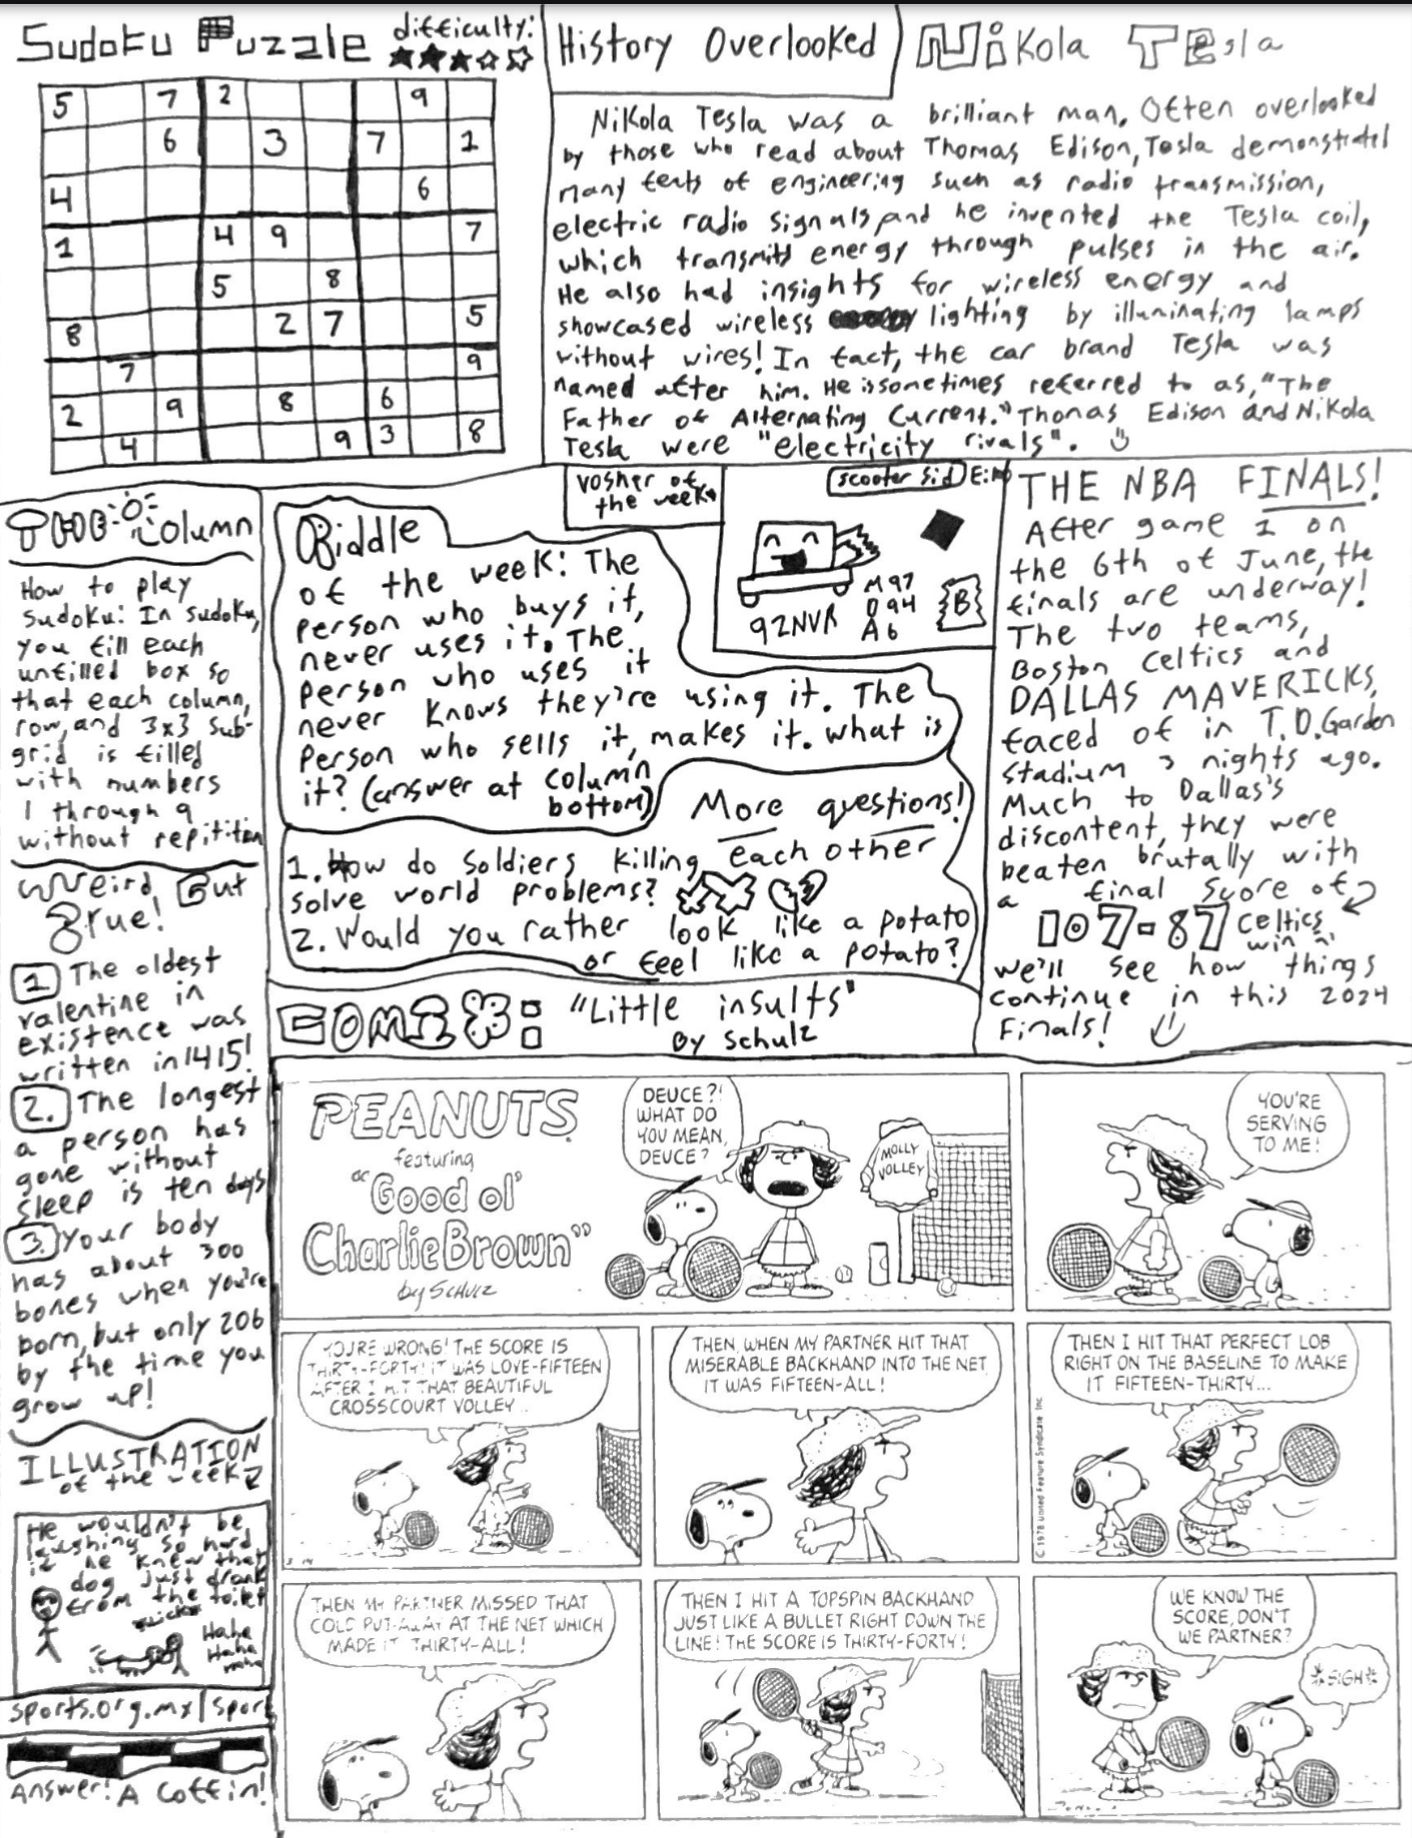 Sudoku Puzzle difficulty:
5 7 2 9
6 3 7 1
4 6
1 4 9 7
5 8
8 2 7 5
7 9
2 9 8 6
4 9 3 8
History Overlooked
Nikola Tesla
Nikola Tesla was a brilliant man. Often overlooked
by those who read about Thomas Edison, Tesla demonstrated
many feats of engineering such as radio transmission,
electric radio signals and he invented the Tesla coil,
which transmits energy through pulses in the air.
He also had insights for wireless energy and
showcased wireless lighting by illuminating lamps
without wires! In fact, the car brand Tesla was
named after him. He is sometimes referred to as, "The
Father of Alternating Current." Thomas Edison and Nikola
Tesla were "electricity rivals".
THE Column
How to play
Sudoku: In sudoku,
you fill each
unfilled box so
that each column,
row, and 3x3 sub-
grid is filled
with numbers
1 through 9
without repitition
Weird But
True!
1 The oldest
valentine in
existence was
written in 1415!
2. The longest
a person has
gone without
sleep is ten days
3. Your body
has about 300
bones when you're
born, but only 206
by the time you
grow up!
ILLUSTRATION
of the week
He wouldn't be
laughing so hard
if he knew that
dog just drank
from the toilet
Haha
Haha
haha
sports.org.mx/sport
Answer: A Coffin!
Riddle
of the week: The
person who buys it,
never uses it. The
person who uses it
never knows they're using it. The
Person who sells it, makes it. what is
it? (answer at column
bottom)
vosher of
the week
scooter sid
92NVR
M97
D94
A6
B
More questions!
1. How do soldiers killing each other
solve world problems?
2. Would you rather look like a potato
or feel like a potato?
THE NBA FINALS!
After game 1 on
the 6th of June, the
finals are underway!
The two teams,
Boston Celtics and
DALLAS MAVERICKS,
faced of in T.D.Garden
Stadium 3 nights ago.
Much to Dallas's
discontent, they were
beaten brutally with
a final score of
107-87 Celtics
win
We'll see how things
continue in this 2024
Finals!
COMIX: "Little insults"
By Schulz
PEANUTS
featuring
"Good ol'
CharlieBrown"
by SCHULZ
DEUCE?!
WHAT DO
YOU MEAN,
DEUCE?
MOLLY
VOLLEY
YOU'RE
SERVING
TO ME!
YOU'RE WRONG! THE SCORE IS
THIRTY-FORTY! IT WAS LOVE-FIFTEEN
AFTER I HIT THAT BEAUTIFUL
CROSSCOURT VOLLEY..
THEN, WHEN MY PARTNER HIT THAT
MISERABLE BACKHAND INTO THE NET
IT WAS FIFTEEN-ALL!
THEN I HIT THAT PERFECT LOB
RIGHT ON THE BASELINE TO MAKE
IT FIFTEEN-THIRTY...
© 1978 United Feature Syndicate Inc
THEN MY PARTNER MISSED THAT
COLD PUT-AWAY AT THE NET WHICH
MADE IT THIRTY-ALL!
THEN I HIT A TOPSPIN BACKHAND
JUST LIKE A BULLET RIGHT DOWN THE
LINE! THE SCORE IS THIRTY-FORTY!
WE KNOW THE
SCORE, DON'T
WE PARTNER?
*SIGH*